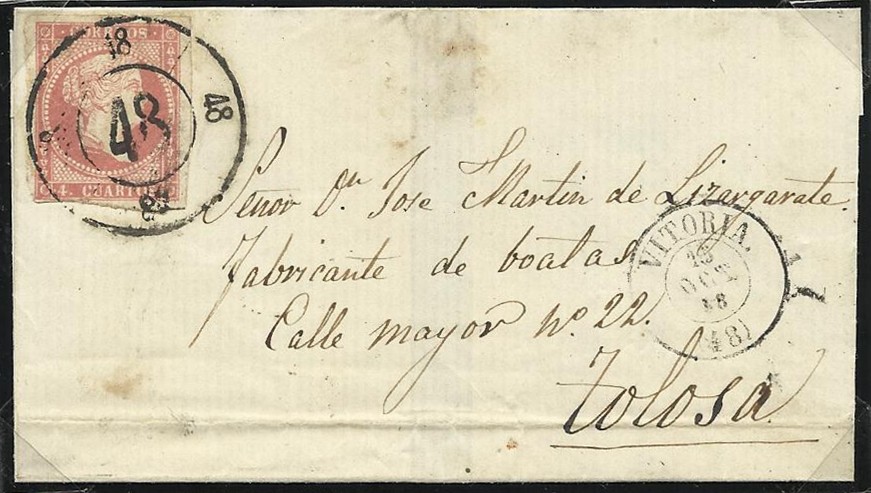 CORREOS
48
48
48
48
4. CUARTOS
Señor Dn Jose Martin de Lizargarate
Fabricante de boatas
Calle mayor No. 22.
Tolosa
VITORIA.
OCT
(48)